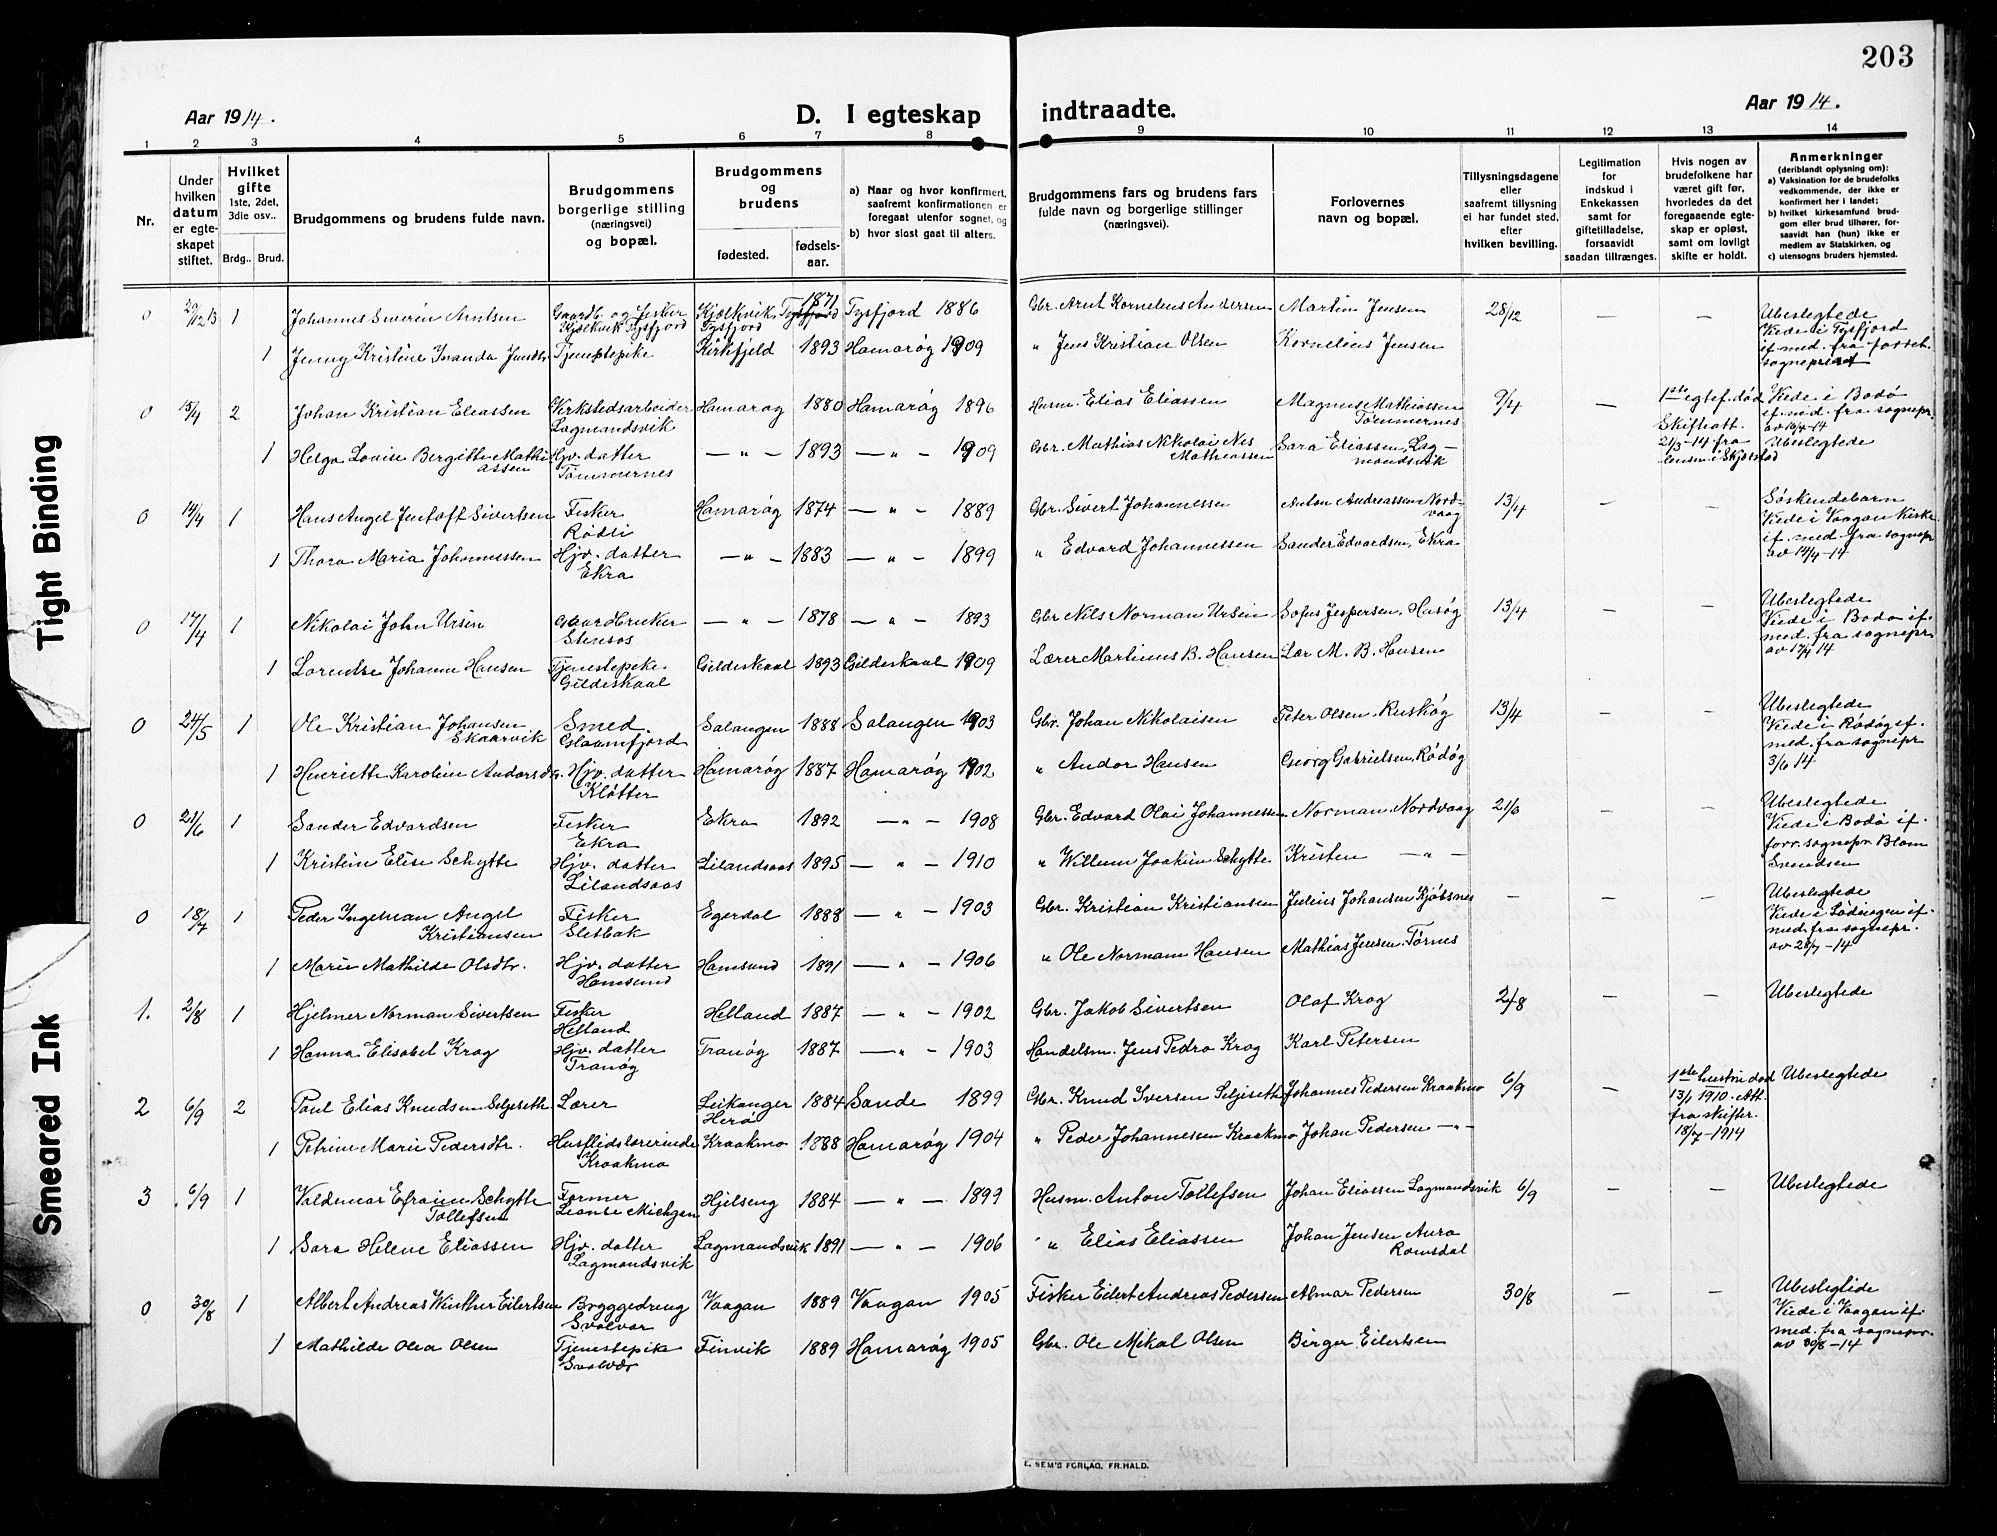 203
Aar 1914.
D. I egteskap indtraadte.
Aar 1914.
1 2 3 4 5 6 7 8 9 10 11 12 13 14
Nr.
Under hvilken datum er egteskapet stiftet.
Hvilket gifte 1ste, 2det, 3die osv..
Brdg.. Brud.
Brudgommens og brudens fulde navn.
Brudgommens borgerlige stilling (næringsvei) og bopæl.
Brudgommens og brudens
fødested. fødselsaar.
a) Naar og hvor konfirmert, saafremt konfirmationen er foregaat utenfor sognet, og
b) hvor sidst gaat til alters.
Brudgommens fars og brudens fars fulde navn og borgerlige stillinger (næringsvei).
Forlovernes navn og bopæl.
Tillysningsdagene eller saafremt tillysning ei har fundet sted, efter hvilken bevilling.
Legitimation for indskud i Enkekassen samt for giftetilladelse, forsaavidt saadan tiltrænges.
Hvis nogen av brudefolkene har været gift før, hvorledes da det foregaaende egteskap er opløst, samt om lovligt skifte er holdt.
Anmerkninger (deriblandt oplysning om):
a) Vaksination for de brudefolks vedkommende, der ikke er konfirmert her i landet;
b) hvilket kirkesamfund brudgom eller brud tilhører, forsaavidt han (hun) ikke er medlem av Statskirken, og
c) utensogns bruders hjemsted.
0 29/12 13 1 Johannes Severin Arntsen Gaardb. og Fisker Kjølkvik, Tysfjord Kjølkvik, Tysfjord 1871 Tysfjord 1886 Gbr. Arnt Kornelius Andersen Martin Jensen 28/12 — — Ubeslegtede
Viede i Tysfjord
if. med. fra forret.
sogneprest
1 Jenny Kristine Jensdtr. Tjenestepike Kirkfjeld 1893 Hamarøg 1909 " Jens Kristian Olsen Kornelius Jensen
0 15/4 2 Johan Kristian Eliassen Verkstedsarbeider Lagmandsvik Hamarøg 1880 Hamarøg 1896 Husm. Elias Eliassen Magnus Mathiassen Tømmernes 9/4 — 1ste egtef. død
Skifteatt.
21/3-14 fra
lensm. i Skjerstad
Viede i Bodø
if. med. fra sognepr.
av 16/4-14
Ubeslegtede
1 Helga Lovise Bergitte Mathiassen Hjv. datter Tømmernes —"— 1893 —"— 1909 Gbr. Mathias Nikolai Nes Mathiassen Sara Eliassen, Lagmandsvik
0 14/4 1 Hans Angel Jentoft Sivertsen Fisker Rødli Hamarøg 1874 —"— 1889 Gbr. Sivert Johannessen Anton Andreassen Nordvaag 13/4 — — Søskendebarn
Viede i Vaagan Kirke
if. med. fra sognepr
av 14/4-14
1 Thora Maria Johannessen Hjv. datter Ekra —"— 1883 —"— 1899 " Edvard Johannessen Sander Edvardsen, Ekra
0 17/4 1 Nikolai John Ursin Gaardbruker Stensos —"— 1878 —"— 1893 Gbr. Nils Norman Ursin Sofus Jespersen, Husøg 13/4 — — Ubeslegtede
Viede i Bodø if.
med. fra sognepr
av 17/4 14
1 Lorentse Johanne Hansen Tjenestepike Gildeskaal Gildeskaal 1893 Gildeskaal 1909 Lærer Martinus B. Hansen Lær M. B. Hansen
0 24/5 1 Ole Kristian Johansen Skaarvik Smed Glaamfjord Salangen 1888 Salangen 1903 Gbr. Johan Nikolaisen Peter Olsen 13/4 — — Ubeslegtede
Viede i Rødøg if.
med. fra sognepr
3/6 14
1 Henriette Karoline Andorsdtr. Hjv. datter Kløtter Hamarøg 1887 Hamarøg 1902 " Andor Hansen Georg Gabrielsen, Rødøg
0 21/6 1 Sander Edvardsen Fisker Ekra Ekra 1892 —"— 1908 Gbr. Edvard Olai Johannessen Norman, Nordvaag 21/6 — — Ubeslegtede
Viede i Bodø if.
forr. sognepr. Blom
Svendsen
1 Kristine Elise Schytte Hjv. datter Lilandsaas Lilandsaas 1895 —"— 1910 " Willum Joakim Schytte Kristen —"—
0 18/7 1 Peder Ingeman Angel Kristiansen Fisker Sletbak Egerdal 1888 —"— 1903 Gbr. Kristian Kristiansen Julius Johansen Kjøbsnes — — — Ubeslegtede
Viede i Lødingen if.
med. fra sognepr.
av 28/7-14
1 Marie Mathilde Olsdtr. Hjv. datter Hamsund Hamsund 1891 —"— 1906 " Ole Normann Hansen Mathias Jensen, Tørnes
1. 2/8 1 Hjelmer Norman Sivertsen Fisker Helland Helland 1887 —"— 1902 Gbr. Jakob Sivertsen Olaf Krog 2/8 — — Ubeslegtede
1 Hanna Elisabet Krog Hjv. datter Tranøg Tranøg 1887 —"— 1903 Handelsm. Jens Pedro Krog Karl Petersen
2 6/9 2 Paul Elias Knudsen Seljeseth Lærer Leikanger Herø 1884 Sande 1899 Gbr. Knud Iversen Seljeseth Johannes Pedersen Kraakmo 6/9 — 1ste hustru død
13/1 1910. Att.
fra skifter.
18/7-1914
Ubeslegtede
1 Petrine Marie Pedersdtr. Husflidslærerinde Kraakmo Kraakmo 1888 Hamarøg 1904 " Peder Johannessen Kraakmo Johan Pedersen —"—
3 6/9 1 Valdemar Efraim Schytte Tollefsen Farmer Michgan Hjelseng 1884 —"— 1899 Husm. Anton Tollefsen Johan Eliassen Lagmandsvik 6/9 — — Ubeslegtede
1 Sara Helene Eliassen Hjv. datter Lagmandsvik Lagmandsvik 1891 —"— 1906 " Elias Eliassen Johan Jensen Aura Romsdal
0 30/8 1 Albert Andreas Winther Eilertsen Bryggedreng Svolvær Vaagan 1889 Vaagan 1905 Fisker Eilert Andreas Pedersen Almar Pedersen 30/8 — — Ubeslegtede
Viede i Vaagan if.
med. fra sognepr.
av 30/8-14
1 Mathilde Olea Olsen Tjenestepike Svolvær Finvik 1889 Hamarøg 1905 Gbr. Ole Mikal Olsen Birger Eilertsen
E. SEM'S FORLAG, FR.HALD.
Tight Binding
Smeared Ink